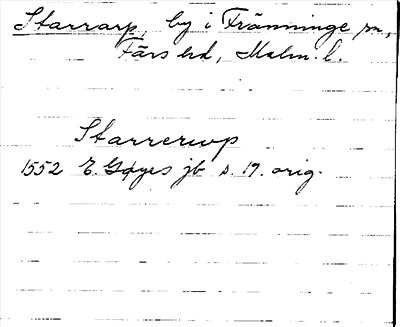 Starrarp, by i Främninge sn,
Färs hd, Malm. l.
Starrerup
1552 E. Gøyes jb s. 19. orig.